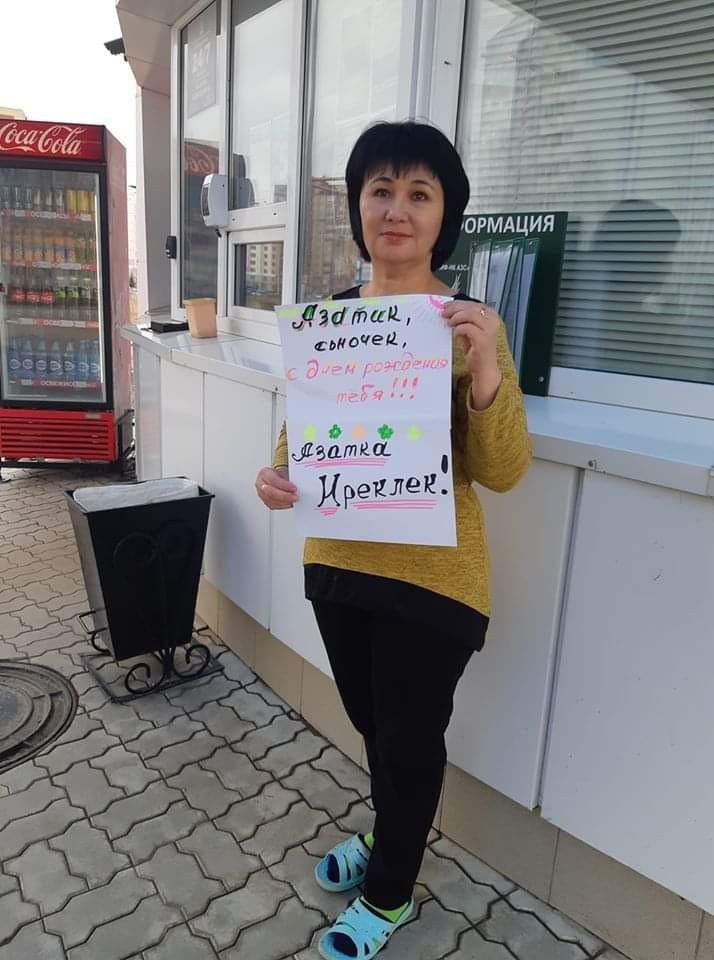 Coca-Cola
ОРМАЦИЯ
Азатик,
сыночек,
с днем рождения
тебя!!!
Азатка
Иреклек!